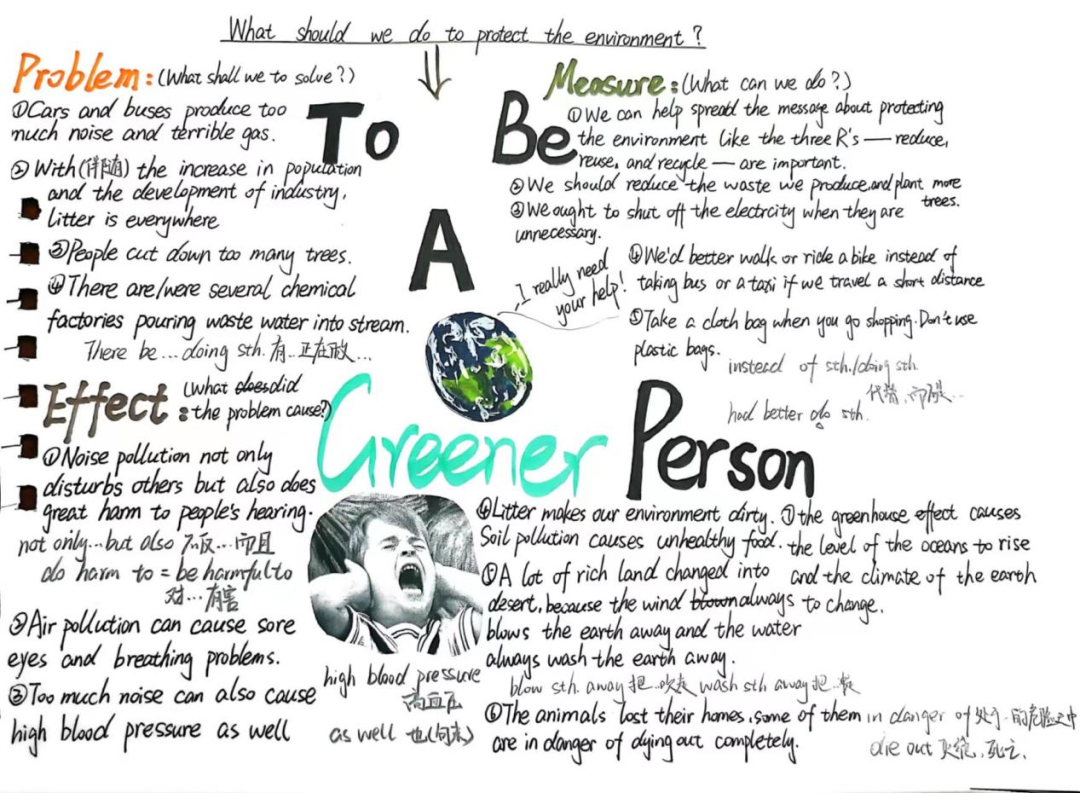 What should we do to protect the environment?
Problem: (What shall we to solve?)
①Cars and buses produce too
much noise and terrible gas.
②With(伴随) the increase in population
and the development of industry,
litter is everywhere
③People cut down too many trees.
④There are/were several chemical
factories pouring waste water into stream.
There be... doing sth. 有...正在做...
To
Be
A
Greener Person
I really need
your help!
Measure: (What can we do?)
①We can help spread the message about protecting
the environment like the three R's — reduce,
reuse, and recycle — are important.
②We should reduce the waste we produce and plant more
trees.
③We ought to shut off the electrcity when they are
unnecessary.
④We'd better walk or ride a bike instead of
taking bus or a taxi if we travel a short distance
⑤Take a cloth bag when you go shopping. Don't use
plastic bags.
instead of sth./doing sth.
代替,而不是...
had better do sth.
Effect: (What does did
the problem cause?)
①Noise pollution not only
disturbs others but also does
great harm to people's hearing.
not only...but also 不仅...而且
do harm to = be harmful to
对...有害
②Air pollution can cause sore
eyes and breathing problems.
③Too much noise can also cause
high blood pressure as well
high blood pressure
高血压
as well 也(句末)
④Litter makes our environment dirty.
Soil pollution causes unhealthy food.
⑤A lot of rich land changed into
desert, because the wind blown always
blows the earth away and the water
always wash the earth away.
blow sth. away 把...吹走 wash sth away 把...
⑥The animals lost their homes, some of them
are in danger of dying out completely.
in danger of 处于...的危险之中
die out 灭绝,死亡.
⑦the greenhouse effect causes
the level of the oceans to rise
and the climate of the earth
to change.